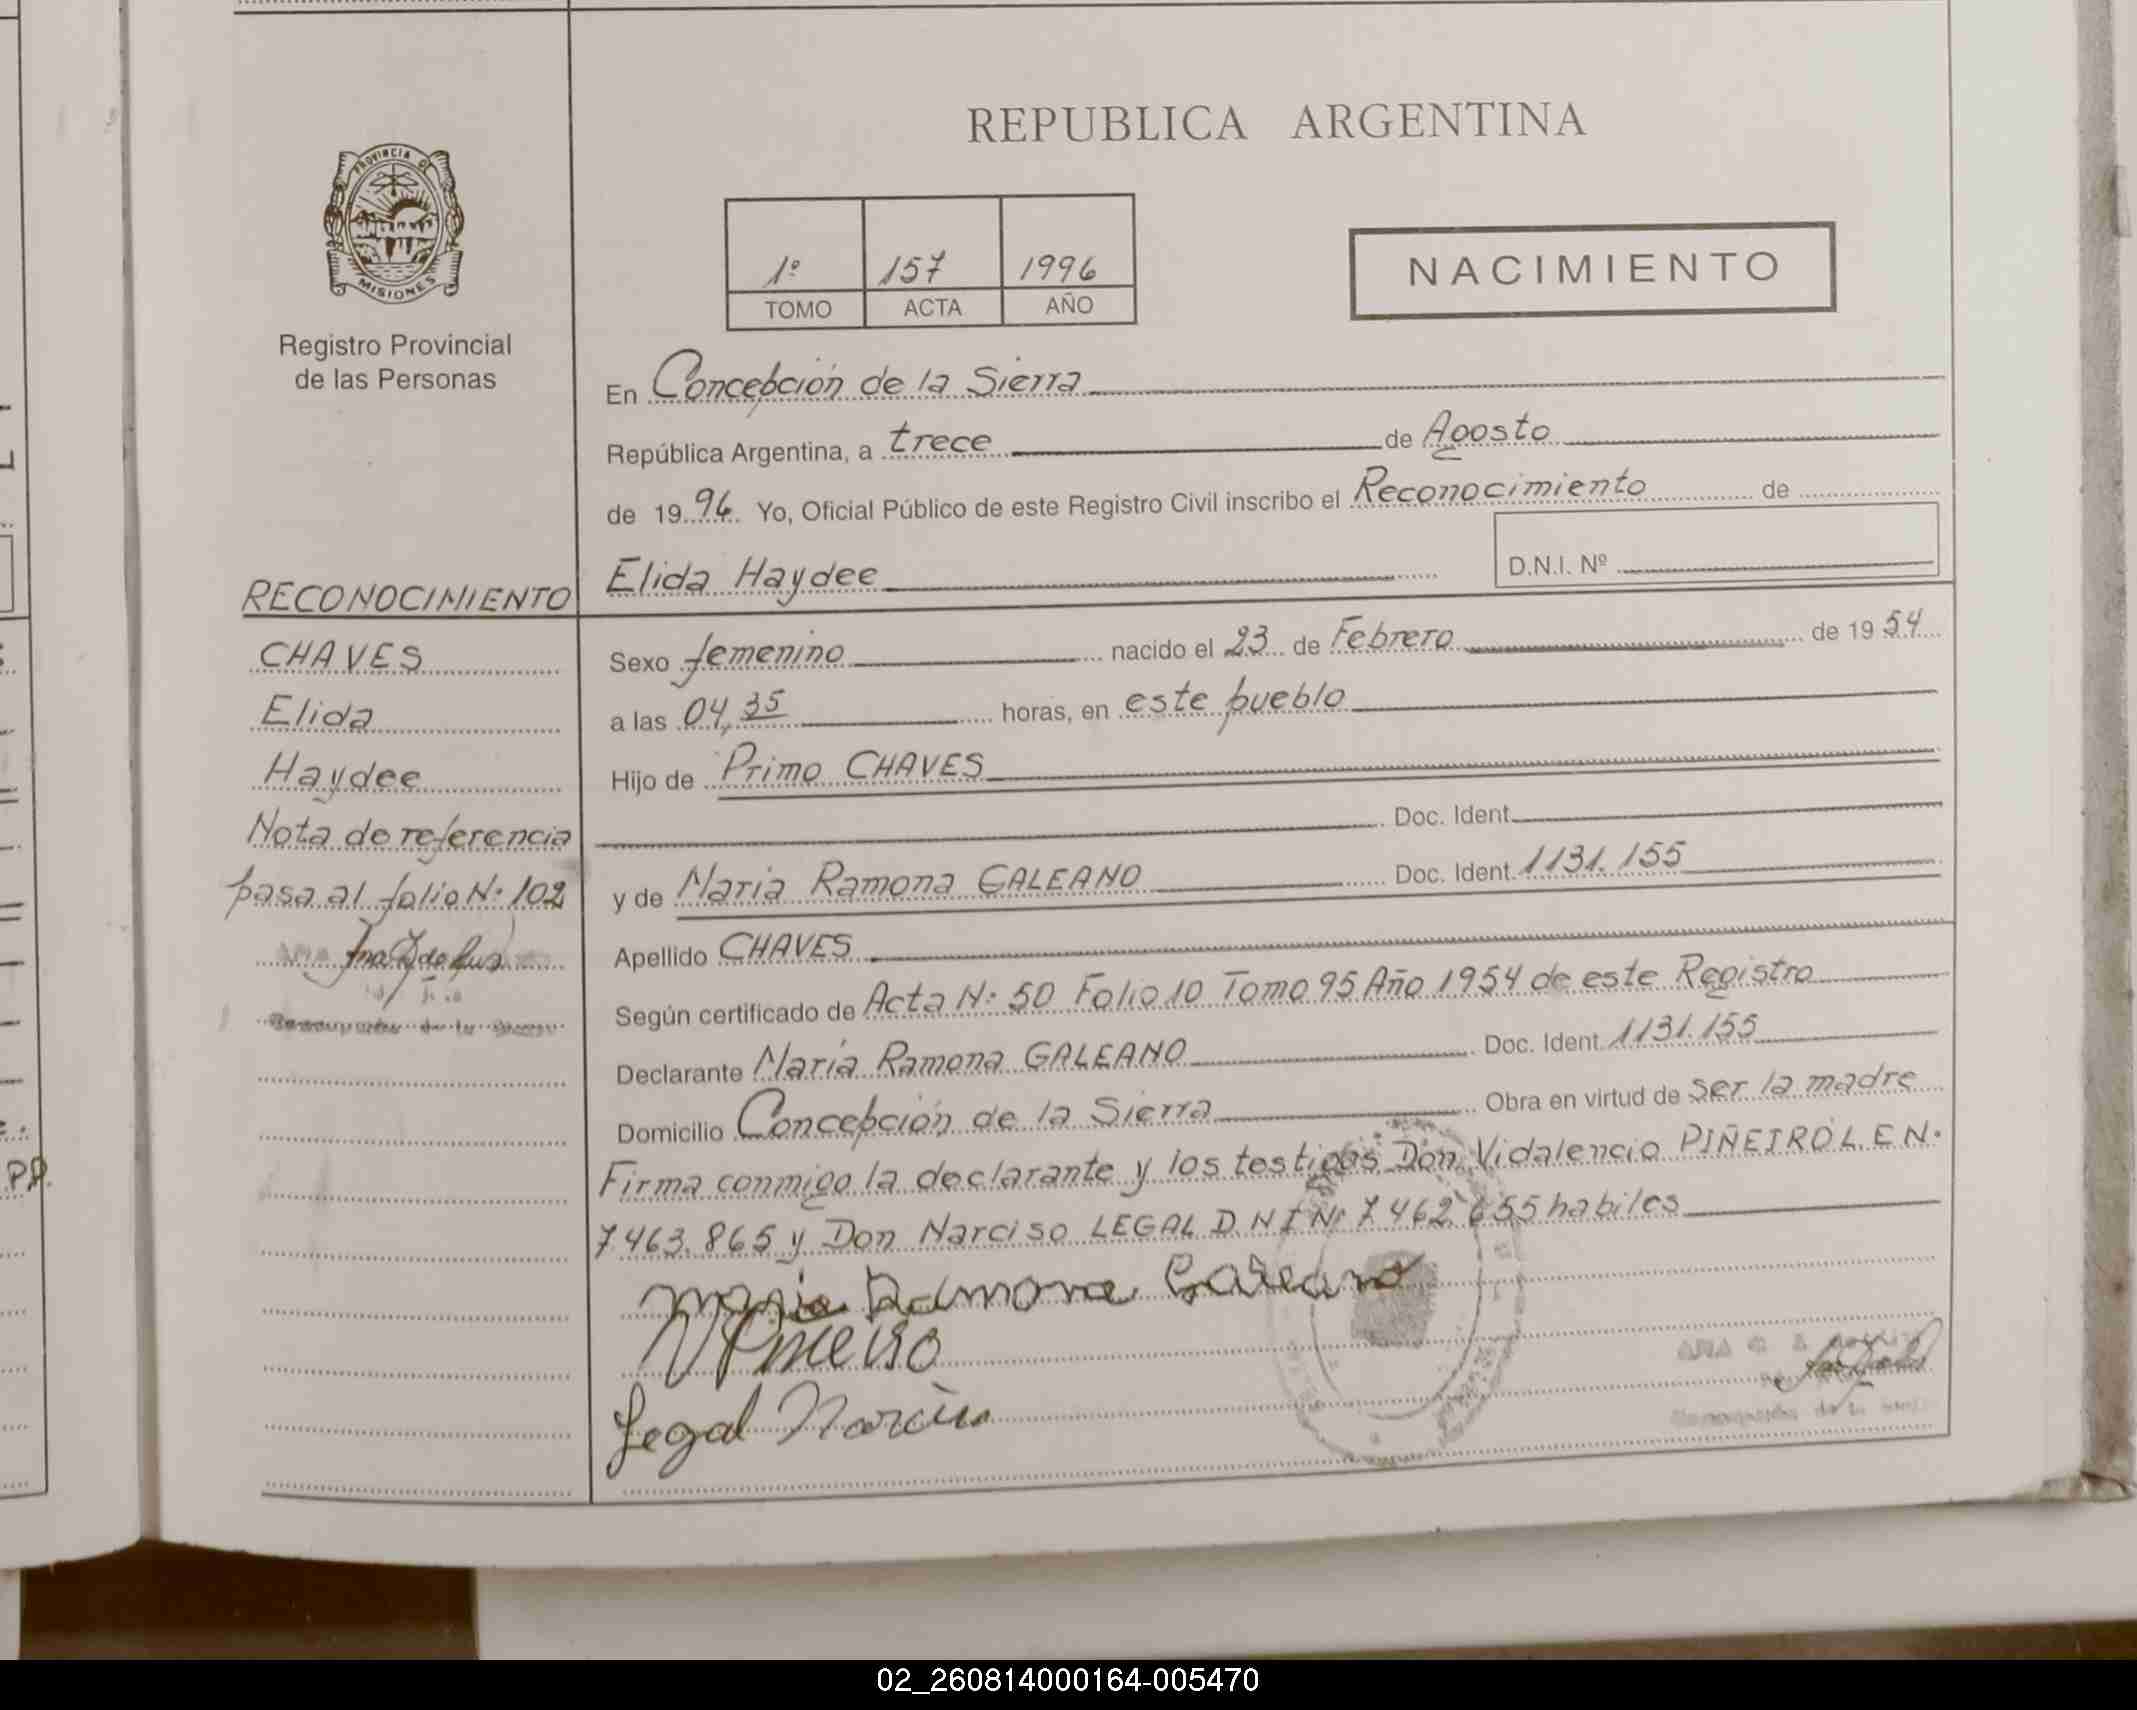 REPUBLICA ARGENTINA
PROVINCIA DE
MISIONES
Registro Provincial
de las Personas
1º 157 1996
TOMO ACTA AÑO
NACIMIENTO
En Concepción de la Sierra
República Argentina, a trece de Agosto
de 1996. Yo, Oficial Público de este Registro Civil inscribo el Reconocimiento de
Elida Haydee D.N.I. Nº
RECONOCIMIENTO
CHAVES
Elida
Haydee
Nota de referencia
pasa al folio Nº 102
Sexo femenino nacido el 23 de Febrero de 1954
a las 04,35 horas, en este pueblo
Hijo de Primo CHAVES
Doc. Ident.
y de Maria Ramona GALEANO Doc. Ident. 1131.155
Apellido CHAVES
Según certificado de Acta Nº 50 Folio 10 Tomo 95 Año 1954 de este Registro
Declarante María Ramona GALEANO Doc. Ident. 1131.155
Domicilio Concepción de la Sierra Obra en virtud de ser la madre
Firma conmigo la declarante y los testigos Don Vidalencio PIÑEIRO L.E Nº
7463.865 y Don Narciso LEGAL D.N.I Nº 7462.655 habiles
Maria Ramona Galeano
VPineiro
Legal Narciso
PP.
02_260814000164-005470